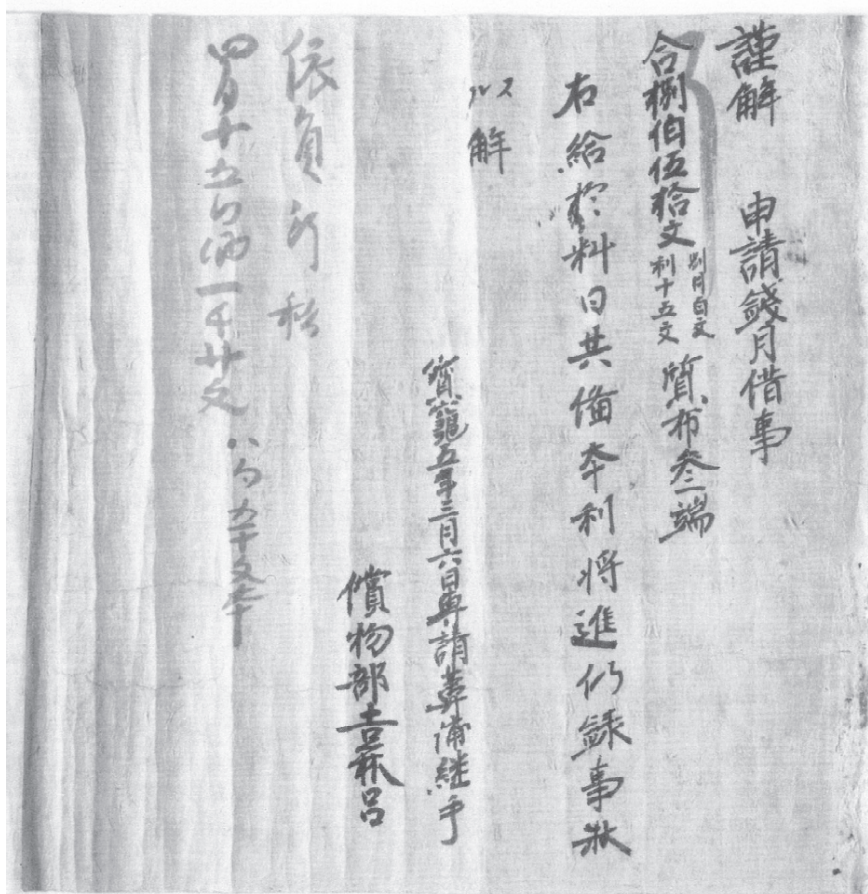 謹解 申請錢月借事
合捌伯伍拾文 別月百文 利十五文 質布叁端
右給於料日共備夲利将進仍錄事状
以解
寳龜五年三月六日專請葦浦継手
償物部吉麻呂
依員行
四月十五日納一千廿文 八百五十文夲